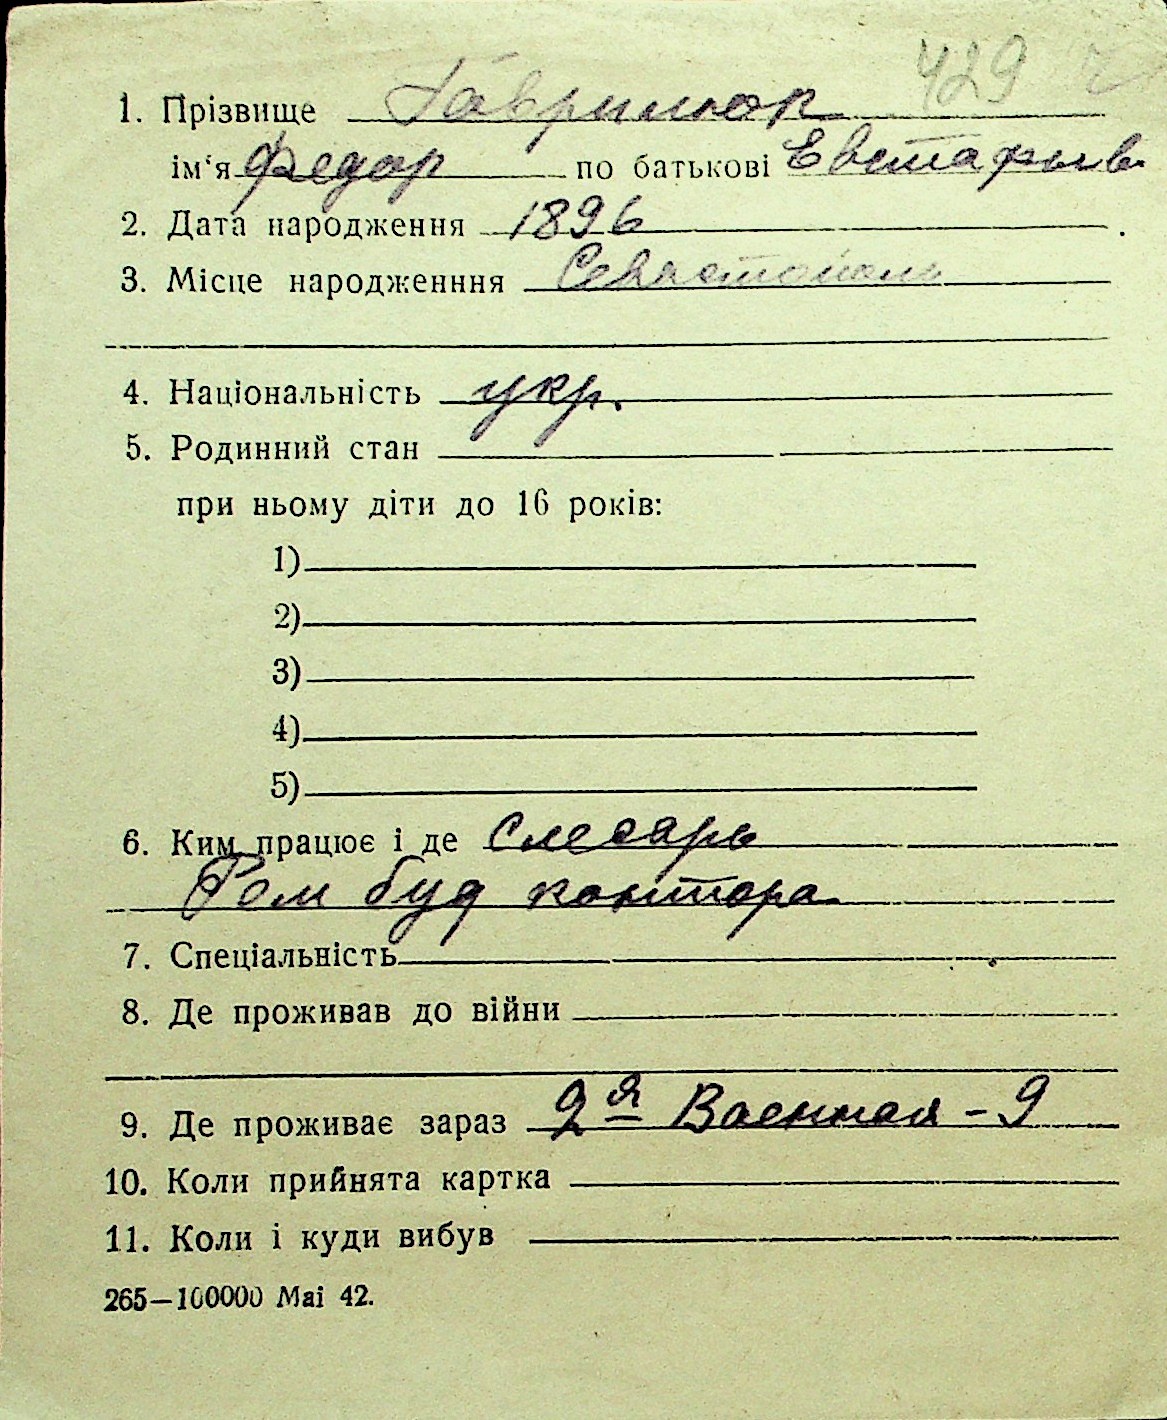 429
1. Прізвище Гаврилюк
ім'я Федор по батькові Евстафьев
2. Дата народження 1896
3. Місце народженння Севастополь
4. Національність укр.
5. Родинний стан
при ньому діти до 16 років:
1)
2)
3)
4)
5)
6. Ким працює і де Слесарь
Рем буд контора
7. Спеціальність
8. Де проживав до війни
9. Де проживає зараз 2я Военная - 9
10. Коли прийнята картка
11. Коли і куди вибув
265—100000 Маі 42.